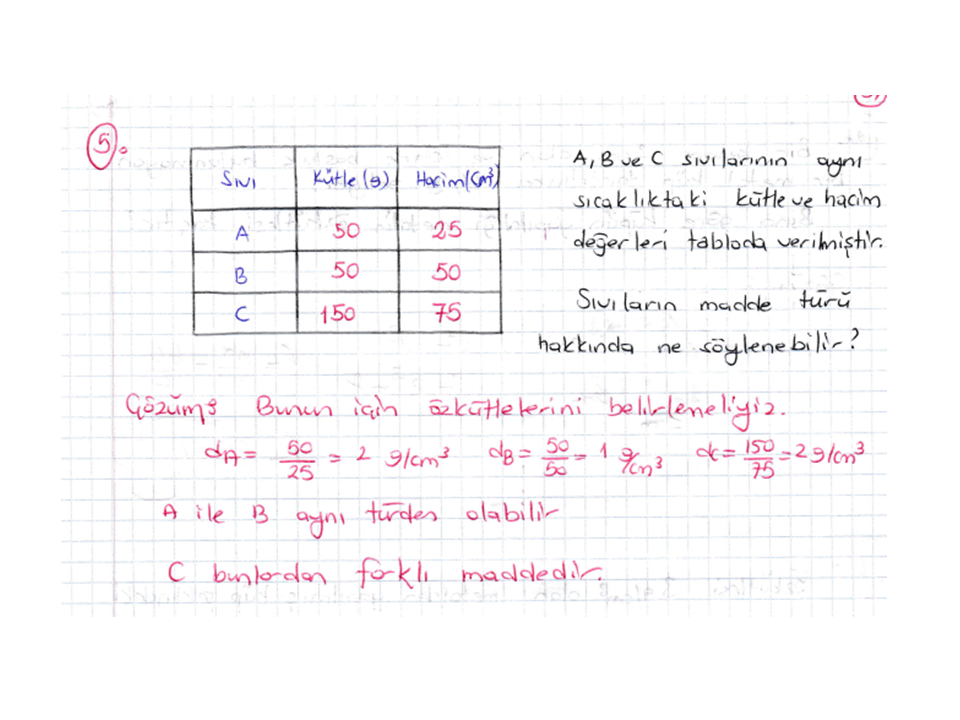 5.
Sıvı Kütle (g) Hacim (cm³)
A 50 25
B 50 50
C 150 75
A, B ve C sıvılarının aynı
sıcaklıktaki kütle ve hacim
değerleri tabloda verilmiştir.
Sıvıların madde türü
hakkında ne söylenebilir?
Çözüm: Bunun için özkütlelerini belirlemeliyiz.
dA = 50/25 = 2 g/cm³ dB = 50/50 = 1 g/cm³ dC = 150/75 = 2 g/cm³
A ile B aynı türden olabilir
C bunlardan farklı maddedir.